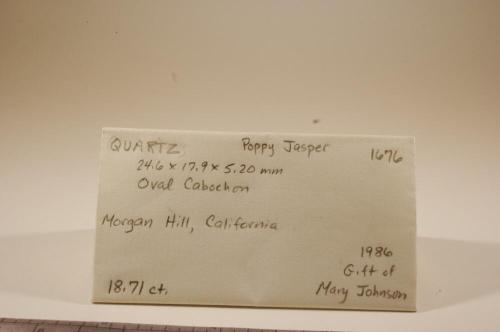 QUARTZ Poppy Jasper 1676
24.6 x 17.9 x 5.20 mm
Oval Cabochon
Morgan Hill, California
1986
Gift of
18.71 ct. Mary Johnson